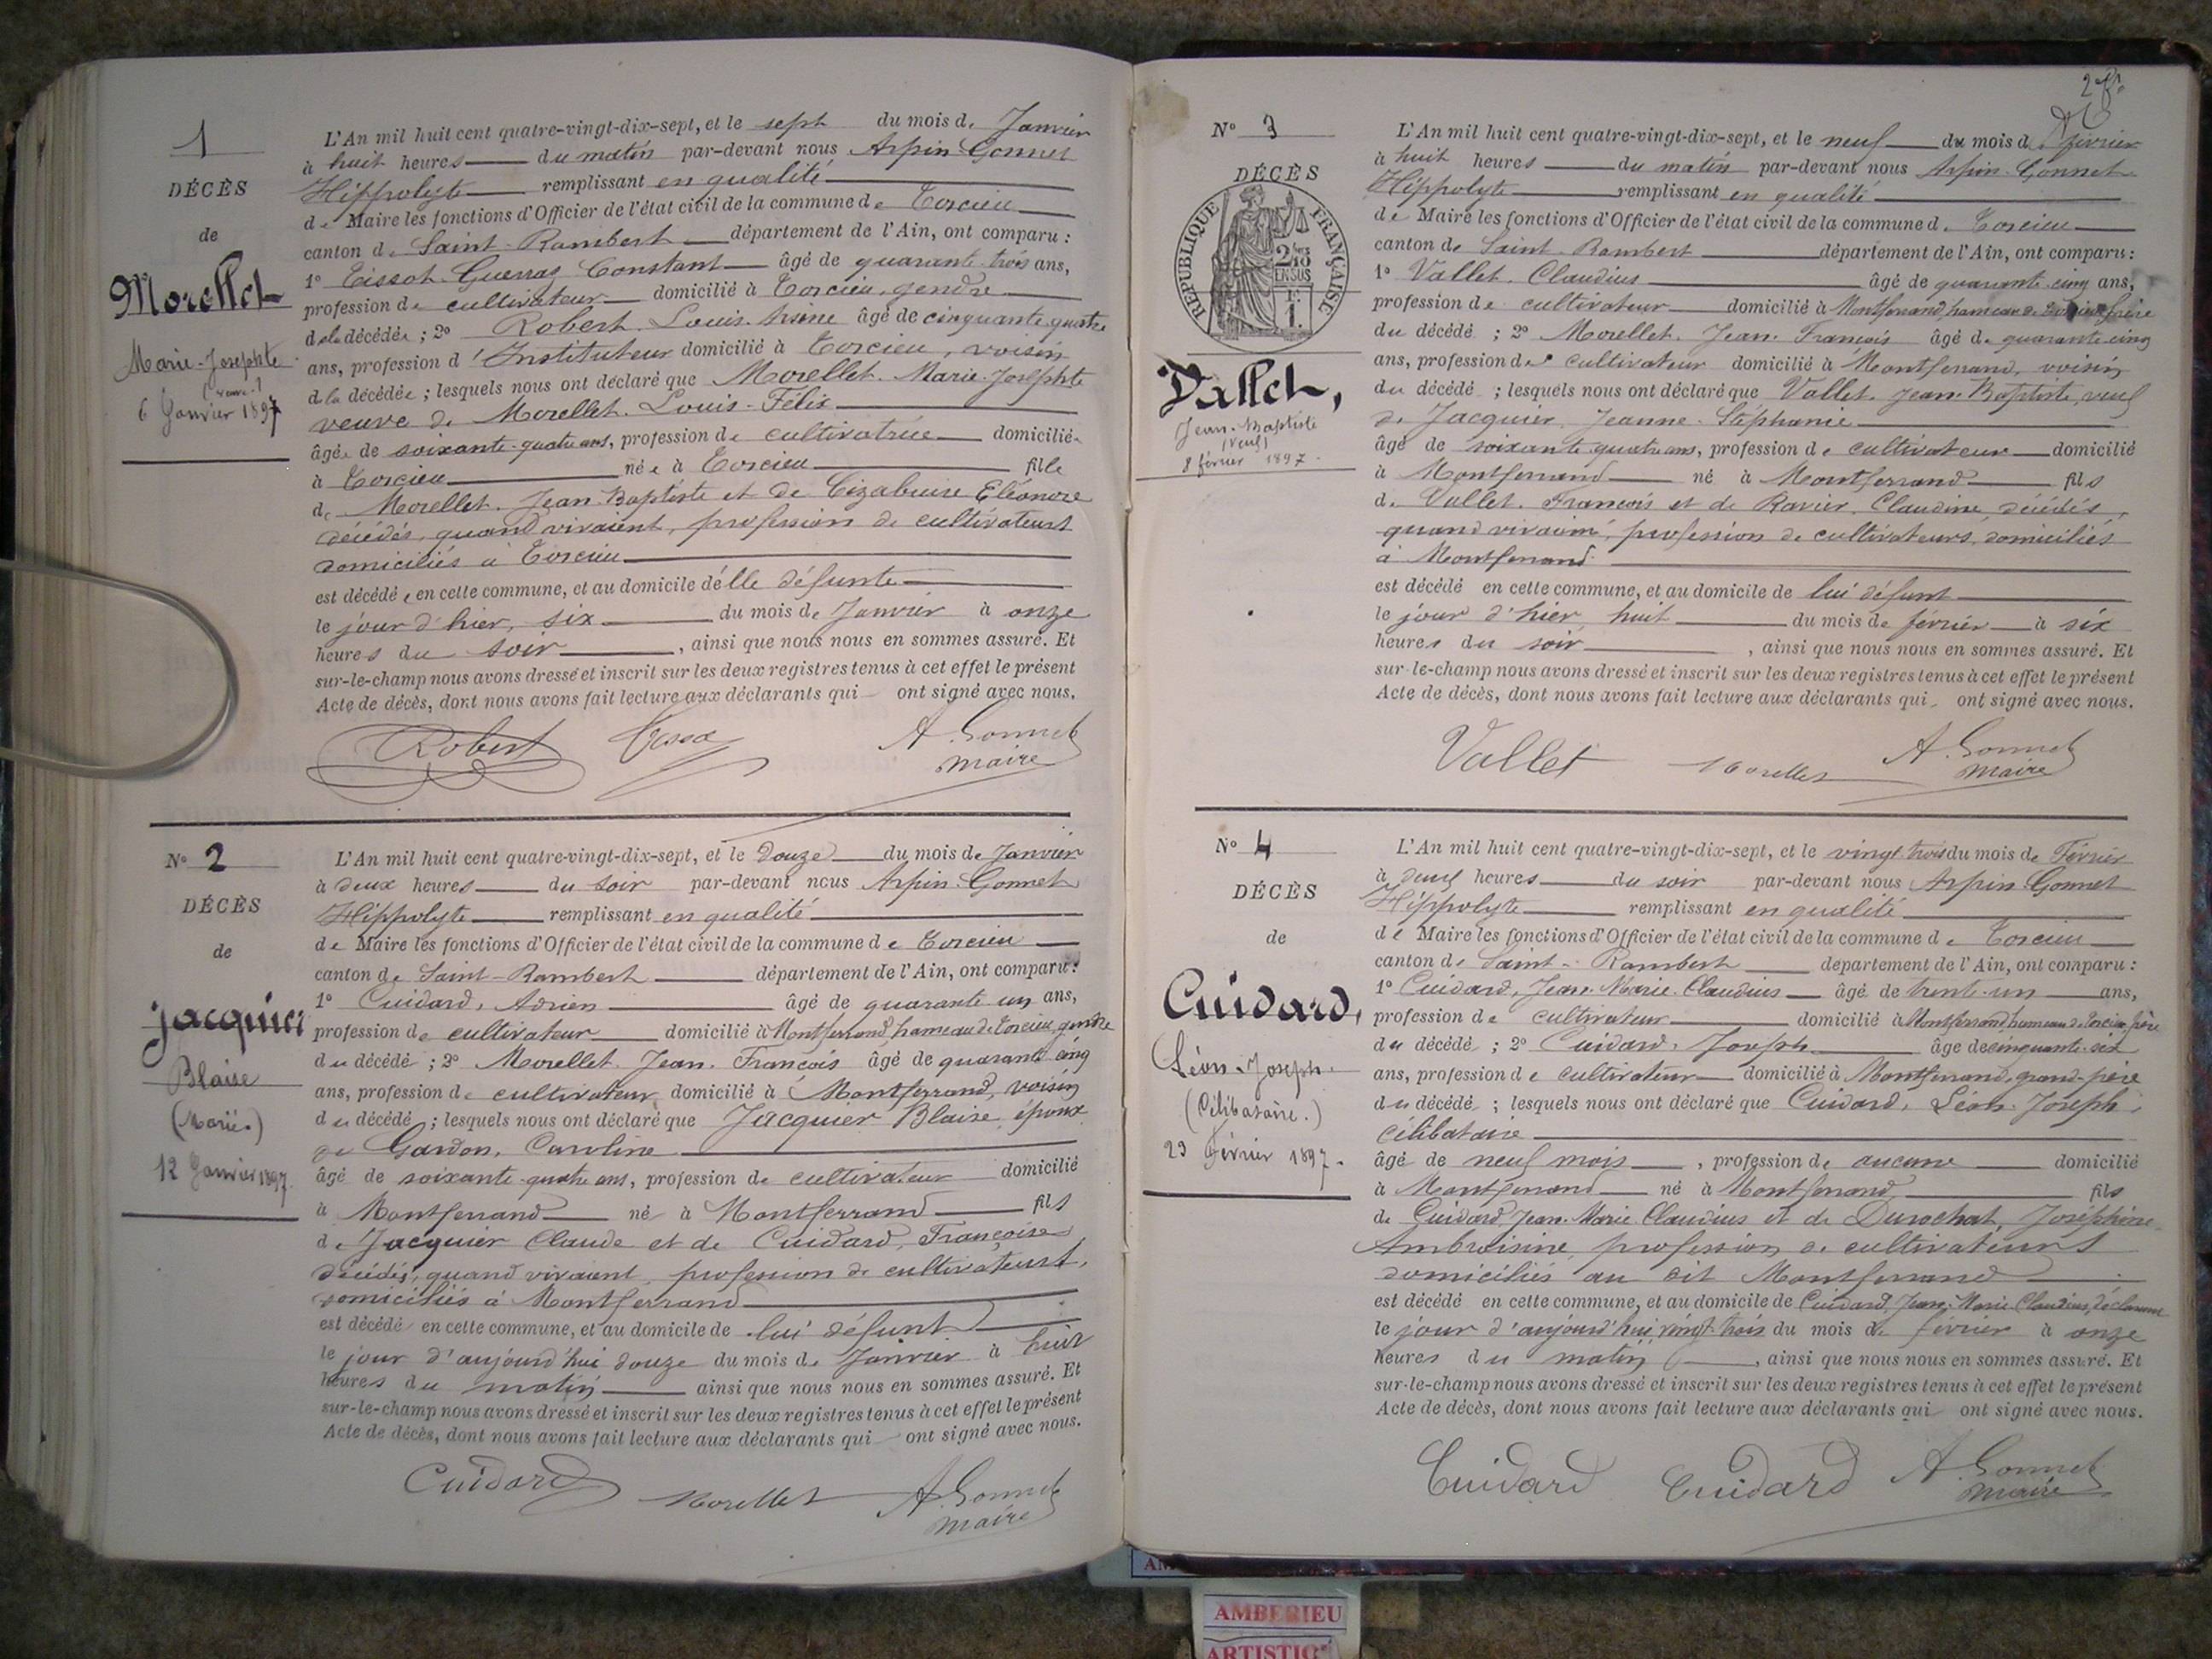 1
DÉCÈS
de
Morellet
Marie-Josephte
(veuve)
6 Janvier 1897
L'An mil huit cent quatre-vingt-dix-sept, et le sept du mois de Janvier
à huit heures du matin par-devant nous Arpin-Gonnet
Hippolyte remplissant en qualité
de Maire les fonctions d'Officier de l'état civil de la commune de Torcieu
canton de Saint-Rambert département de l'Ain, ont comparu :
1º Tissot-Guerraz Constant âgé de quarante-trois ans,
profession de cultivateur domicilié à Torcieu, gendre
de la décédée ; 2º Robert Louis âgé de cinquante-quatre
ans, profession d'Instituteur domicilié à Torcieu, voisin
de la décédée ; lesquels nous ont déclaré que Morellet Marie-Josephte
veuve de Morellet Louis-Félix
âgée de soixante-quatre ans, profession de cultivatrice domiciliée
à Torcieu née à Torcieu fille
de Morellet Jean-Baptiste et de Eléonore
décédés, quand vivaient, profession de cultivateurs
domiciliés à Torcieu
est décédée en cette commune, et au domicile d'elle défunte
le jour d'hier, six du mois de Janvier à onze
heures du soir, ainsi que nous nous en sommes assuré. Et
sur-le-champ nous avons dressé et inscrit sur les deux registres tenus à cet effet le présent
Acte de décès, dont nous avons fait lecture aux déclarants qui ont signé avec nous.
Robert A. Gonnet
maire
Nº 2
DÉCÈS
de
Jacquier
Blaise
(Marié)
12 Janvier 1897.
L'An mil huit cent quatre-vingt-dix-sept, et le douze du mois de Janvier
à deux heures du soir par-devant nous Arpin-Gonnet
Hippolyte remplissant en qualité
de Maire les fonctions d'Officier de l'état civil de la commune de Torcieu
canton de Saint-Rambert département de l'Ain, ont comparu :
1º Cuidard, Adrien âgé de quarante un ans,
profession de cultivateur domicilié à Montferrand hameau de Torcieu, gendre
du décédé ; 2º Morellet Jean-François âgé de quarante cinq
ans, profession de cultivateur domicilié à Montferrand, voisin
du décédé ; lesquels nous ont déclaré que Jacquier Blaise, époux
de Gardon, Caroline
âgé de soixante-quatre ans, profession de cultivateur domicilié
à Montferrand né à Montferrand fils
de Jacquier Claude et de Cuidard, Françoise
décédés, quand vivaient, profession de cultivateurs,
domiciliés à Montferrand
est décédé en cette commune, et au domicile de lui défunt
le jour d'aujourd'hui douze du mois de Janvier à huit
heures du matin ainsi que nous nous en sommes assuré. Et
sur-le-champ nous avons dressé et inscrit sur les deux registres tenus à cet effet le présent
Acte de décès, dont nous avons fait lecture aux déclarants qui ont signé avec nous.
Cuidard Morellet A. Gonnet
maire
Nº 3
DÉCÈS
RÉPUBLIQUE FRANÇAISE
2 /10
EN SUS
Vallet,
Jean-Baptiste
(veuf)
8 février 1897.
L'An mil huit cent quatre-vingt-dix-sept, et le neuf du mois de février
à huit heures du matin par-devant nous Arpin-Gonnet
Hippolyte remplissant en qualité
de Maire les fonctions d'Officier de l'état civil de la commune de Torcieu
canton de Saint-Rambert département de l'Ain, ont comparu :
1º Vallet, Claudius âgé de quarante cinq ans,
profession de cultivateur domicilié à Montferrand, hameau de frère
du décédé ; 2º Morellet Jean-François âgé de quarante cinq
ans, profession de cultivateur domicilié à Montferrand, voisin
du décédé ; lesquels nous ont déclaré que Vallet Jean-Baptiste, veuf
de Jacquier Jeanne-Stéphanie
âgé de soixante-quatre ans, profession de cultivateur domicilié
à Montferrand né à Montferrand fils
de Vallet François et de Ravier Claudine, décédés,
quand vivaient, profession de cultivateurs, domiciliés
à Montferrand
est décédé en cette commune, et au domicile de lui défunt
le jour d'hier, huit du mois de février à six
heures du soir, ainsi que nous nous en sommes assuré. Et
sur-le-champ nous avons dressé et inscrit sur les deux registres tenus à cet effet le présent
Acte de décès, dont nous avons fait lecture aux déclarants qui ont signé avec nous.
Vallet Morellet A. Gonnet
maire
Nº 4
DÉCÈS
de
Cuidard,
Léon-Joseph
(Célibataire.)
23 Février 1897.
L'An mil huit cent quatre-vingt-dix-sept, et le vingt-trois du mois de Février
à deux heures du soir par-devant nous Arpin-Gonnet
Hippolyte remplissant en qualité
de Maire les fonctions d'Officier de l'état civil de la commune de Torcieu
canton de Saint-Rambert département de l'Ain, ont comparu :
1º Cuidard, Jean-Marie-Claudius âgé de trente-un ans,
profession de cultivateur domicilié à Montferrand hameau de Torcieu, père
du décédé ; 2º Cuidard, Joseph âgé de cinquante-six
ans, profession de cultivateur domicilié à Montferrand, grand-père
du décédé ; lesquels nous ont déclaré que Cuidard, Léon-Joseph,
célibataire
âgé de neuf mois, profession de aucune domicilié
à Montferrand né à Montferrand fils
de Cuidard, Jean-Marie-Claudius et de Durochat, Joséphine
Ambroisine, profession de cultivateurs
domiciliés au dit Montferrand
est décédé en cette commune, et au domicile de Cuidard, Jean-Marie-Claudius, déclarant
le jour d'aujourd'hui, vingt-trois du mois de février à onze
heures du matin, ainsi que nous nous en sommes assuré. Et
sur-le-champ nous avons dressé et inscrit sur les deux registres tenus à cet effet le présent
Acte de décès, dont nous avons fait lecture aux déclarants qui ont signé avec nous.
Cuidard Cuidard A. Gonnet
maire
AMBERIEU
ARTISTIC